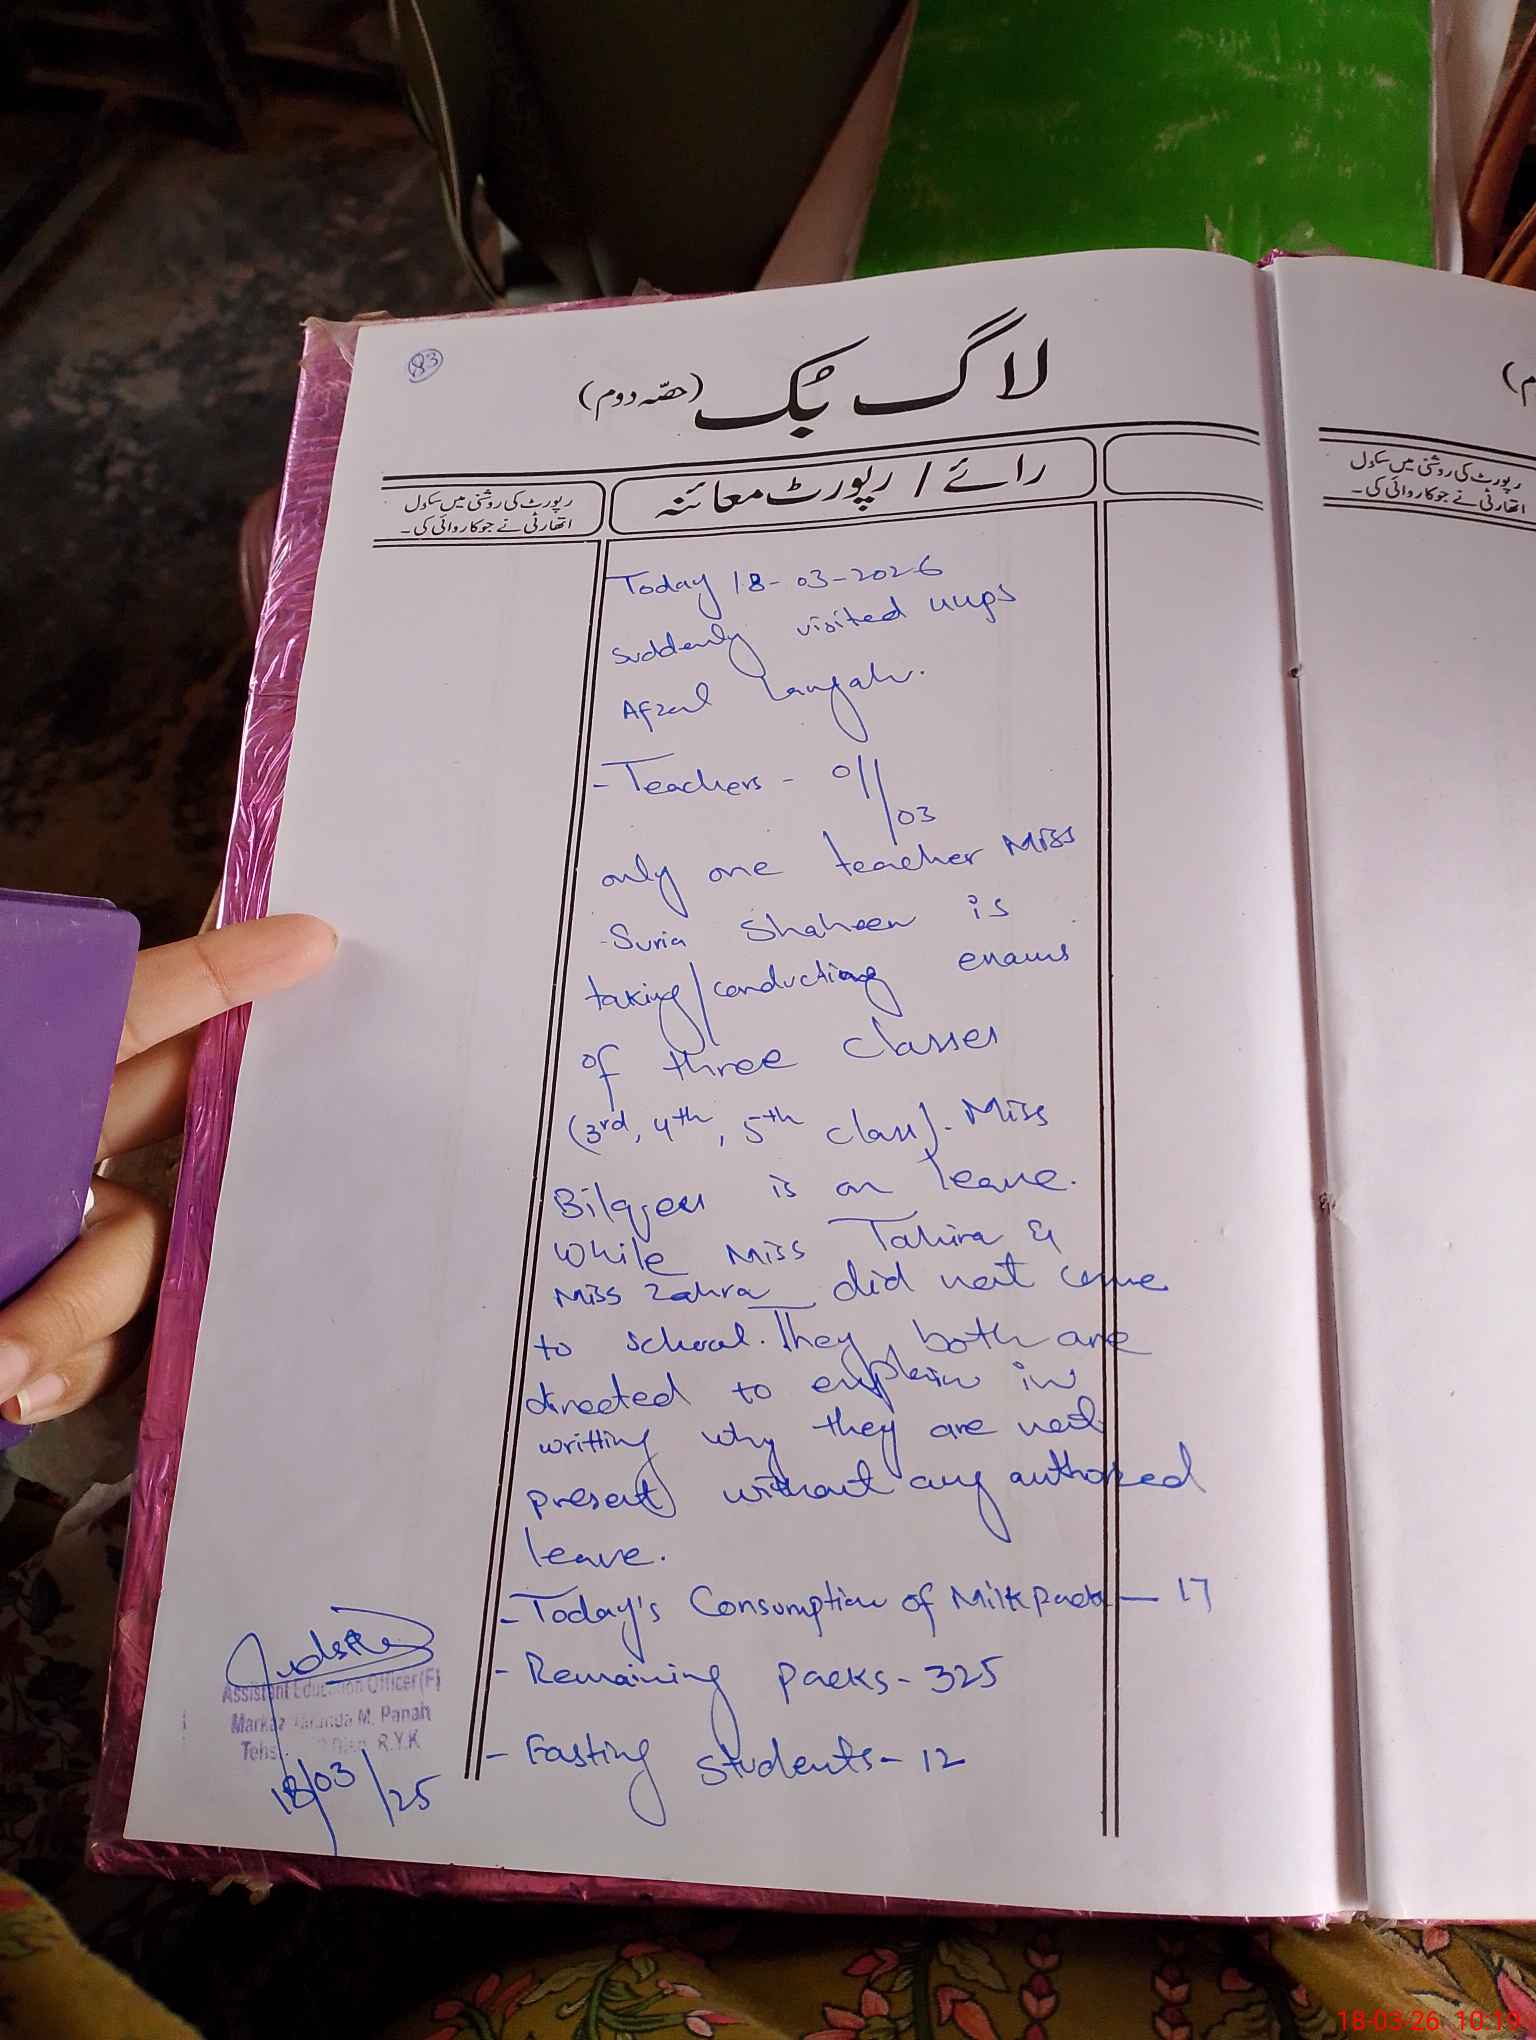 83
لاگ بُک (حصّہ دوم)
رائے / رپورٹ معائنہ
رپورٹ کی روشنی میں سکول
اتھارٹی نے جو کاروائی کی۔
Today 18-03-2026
suddenly visited
Afzal Langah.
- Teachers - 01/03
only one teacher Miss
Suria Shaheen is
taking/conducting exams
of three classes
(3rd, 4th, 5th class). Miss
Bilqees is on leave.
While Miss Tahira &
Miss Zahra did not come
to school. They both are
directed to explain in
writting why they are not
present without any authorzed
leave.
- Today's Consumption of Milk packs — 17
- Remaining packs - 325
- Fasting students - 12
Assistant Education Officer (F)
Markaz M. Panah
R.Y.K
18/03/25
رپورٹ کی روشنی میں سکول
اتھارٹی نے جو کاروائی کی۔
18-03-26 10:19